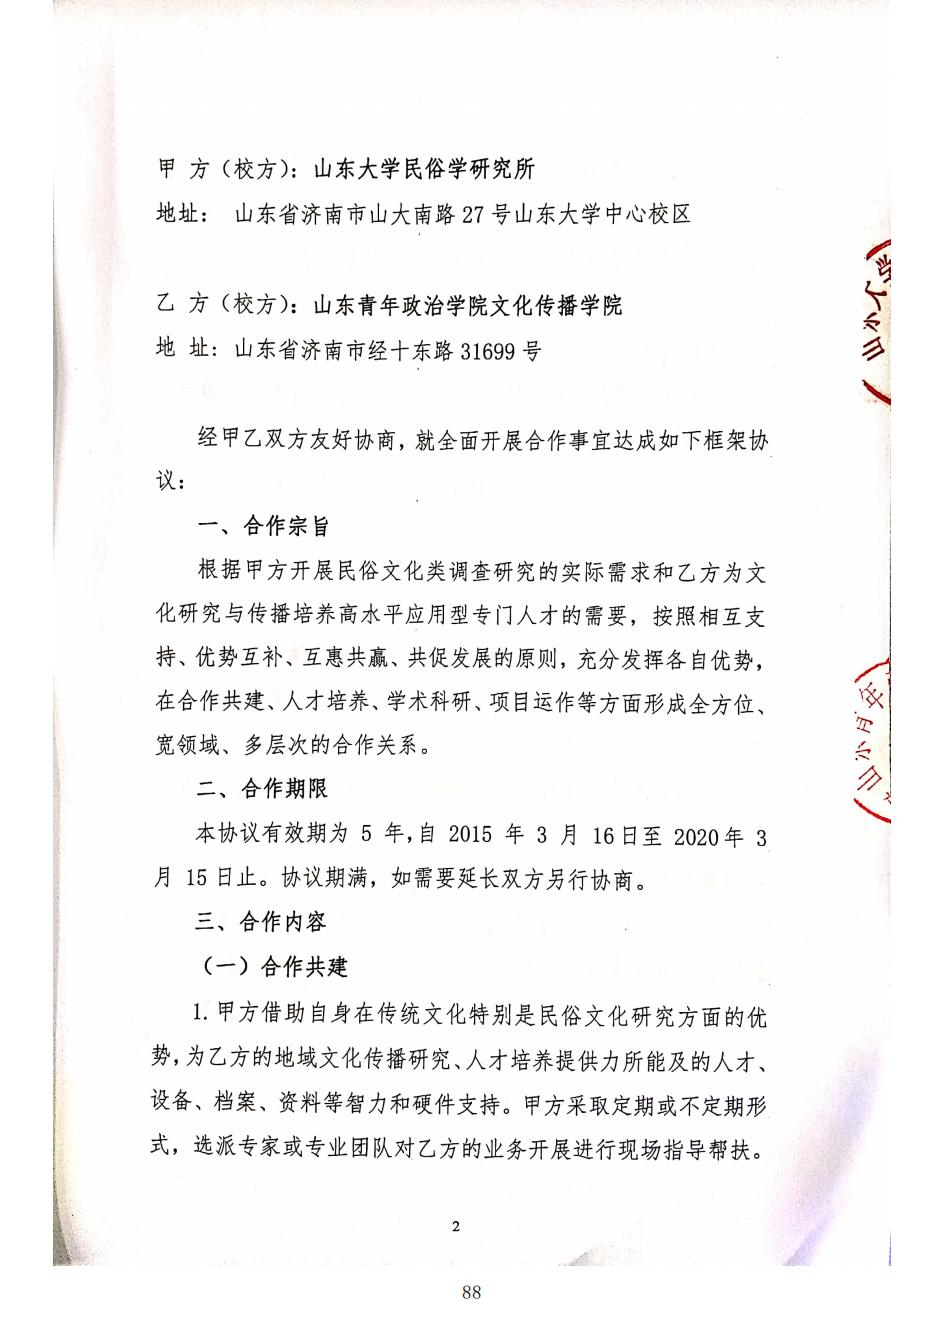 甲 方（校方）：山东大学民俗学研究所
地址： 山东省济南市山大南路 27 号山东大学中心校区
乙 方（校方）：山东青年政治学院文化传播学院
地 址：山东省济南市经十东路 31699 号
经甲乙双方友好协商，就全面开展合作事宜达成如下框架协
议：
一、合作宗旨
根据甲方开展民俗文化类调查研究的实际需求和乙方为文
化研究与传播培养高水平应用型专门人才的需要，按照相互支
持、优势互补、互惠共赢、共促发展的原则，充分发挥各自优势，
在合作共建、人才培养、学术科研、项目运作等方面形成全方位、
宽领域、多层次的合作关系。
二、合作期限
本协议有效期为 5 年，自 2015 年 3 月 16日至 2020年 3
月 15日止。协议期满，如需要延长双方另行协商。
三、合作内容
（一）合作共建
1.甲方借助自身在传统文化特别是民俗文化研究方面的优
势，为乙方的地域文化传播研究、人才培养提供力所能及的人才、
设备、档案、资料等智力和硬件支持。甲方采取定期或不定期形
式，选派专家或专业团队对乙方的业务开展进行现场指导帮扶。
2
88